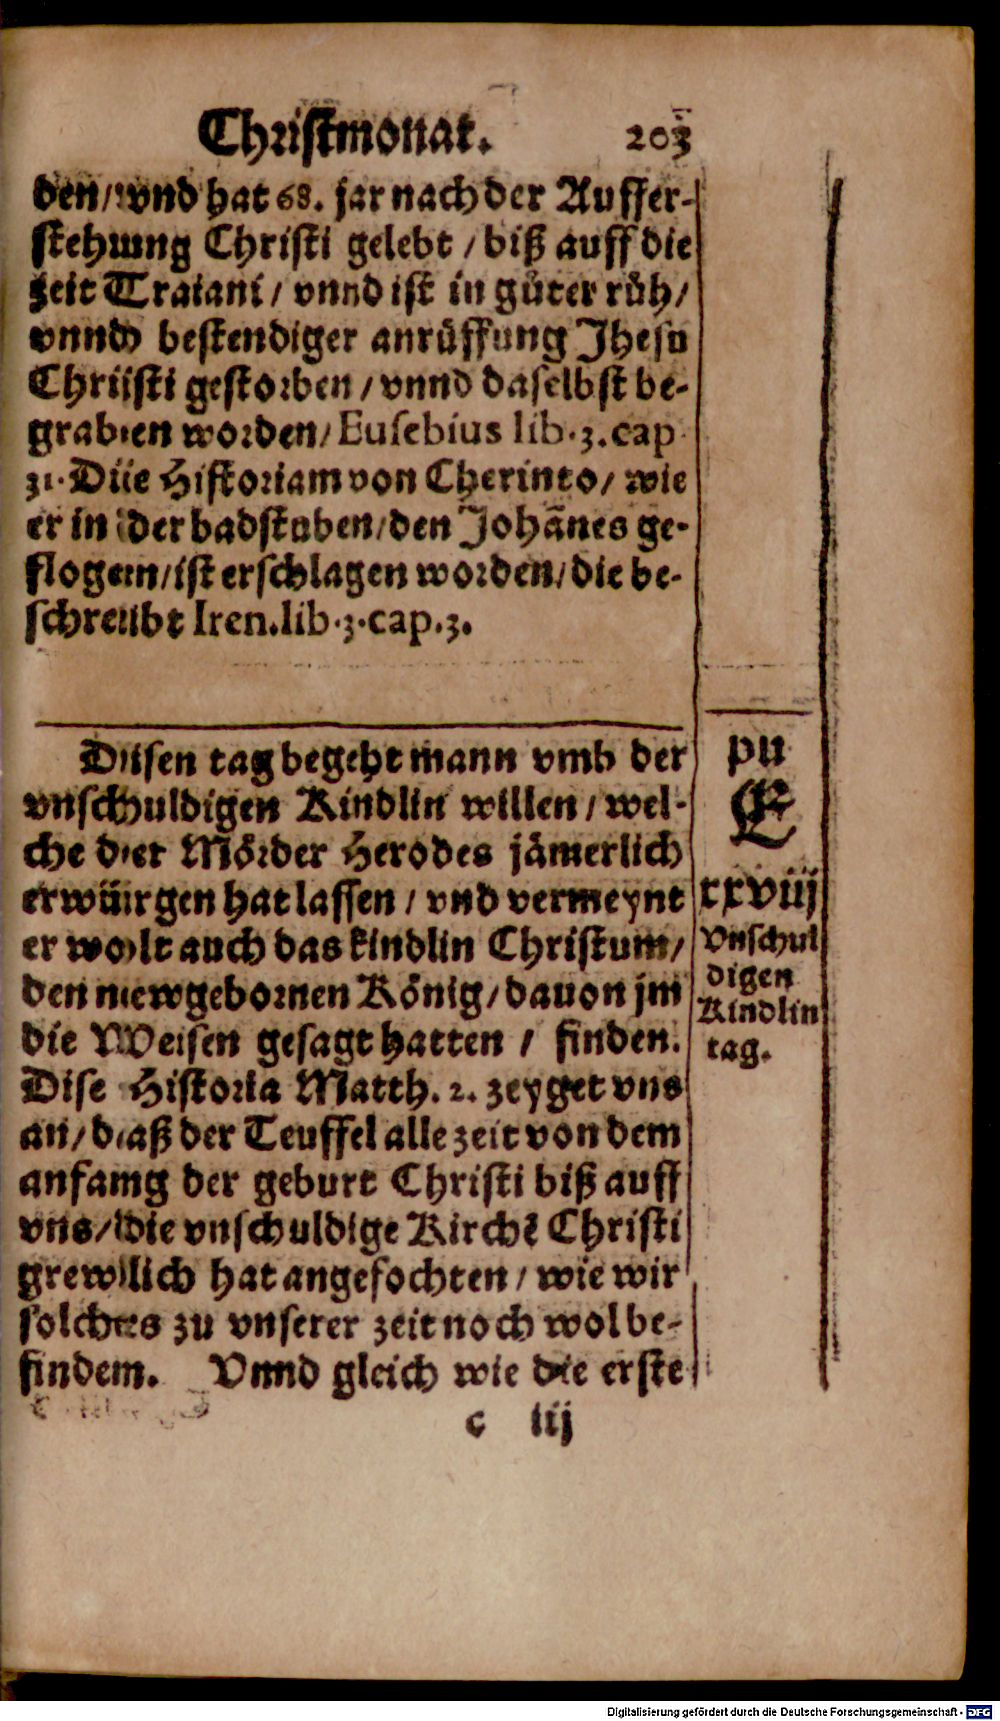 Christmonat. 203
den/ vnd hat 68. jar nach der Auffer-
stehung Christi gelebt / biß auff die
zeit Traiani / vnnd ist in gůter růh/
vnnd bestendiger anrůffung Jhesu
Christi gestorben / vnnd daselbst be-
graben worden/ Eusebius lib.3.cap
31. Die Historiam von Cherinto/ wie
er in der badstuben/den Johãnes ge-
flogen/ist erschlagen worden/die be-
schreibt Iren.lib.3.cap.3.
Disen tag begeht mann vmb der
vnschuldigen Kindlin willen / wel-
che der Mörder Herodes jämerlich
erwürgen hat lassen / vnd vermeynt
er wolt auch das kindlin Christum/
den newgebornen König/dauon jm
die Weisen gesagt hatten / finden.
Dise Historia Matth. 2. zeyget vns
an/daß der Teuffel alle zeit von dem
anfang der geburt Christi biß auff
vns/die vnschuldige Kirchẽ Christi
grewlich hat angefochten / wie wir
solches zu vnserer zeit noch wol be-
finden. Vnnd gleich wie die erste
c iij
pu
E
xxviij
Vnschul
digen
Kindlin
tag.
Digitalisierung gefördert durch die Deutsche Forschungsgemeinschaft - DFG